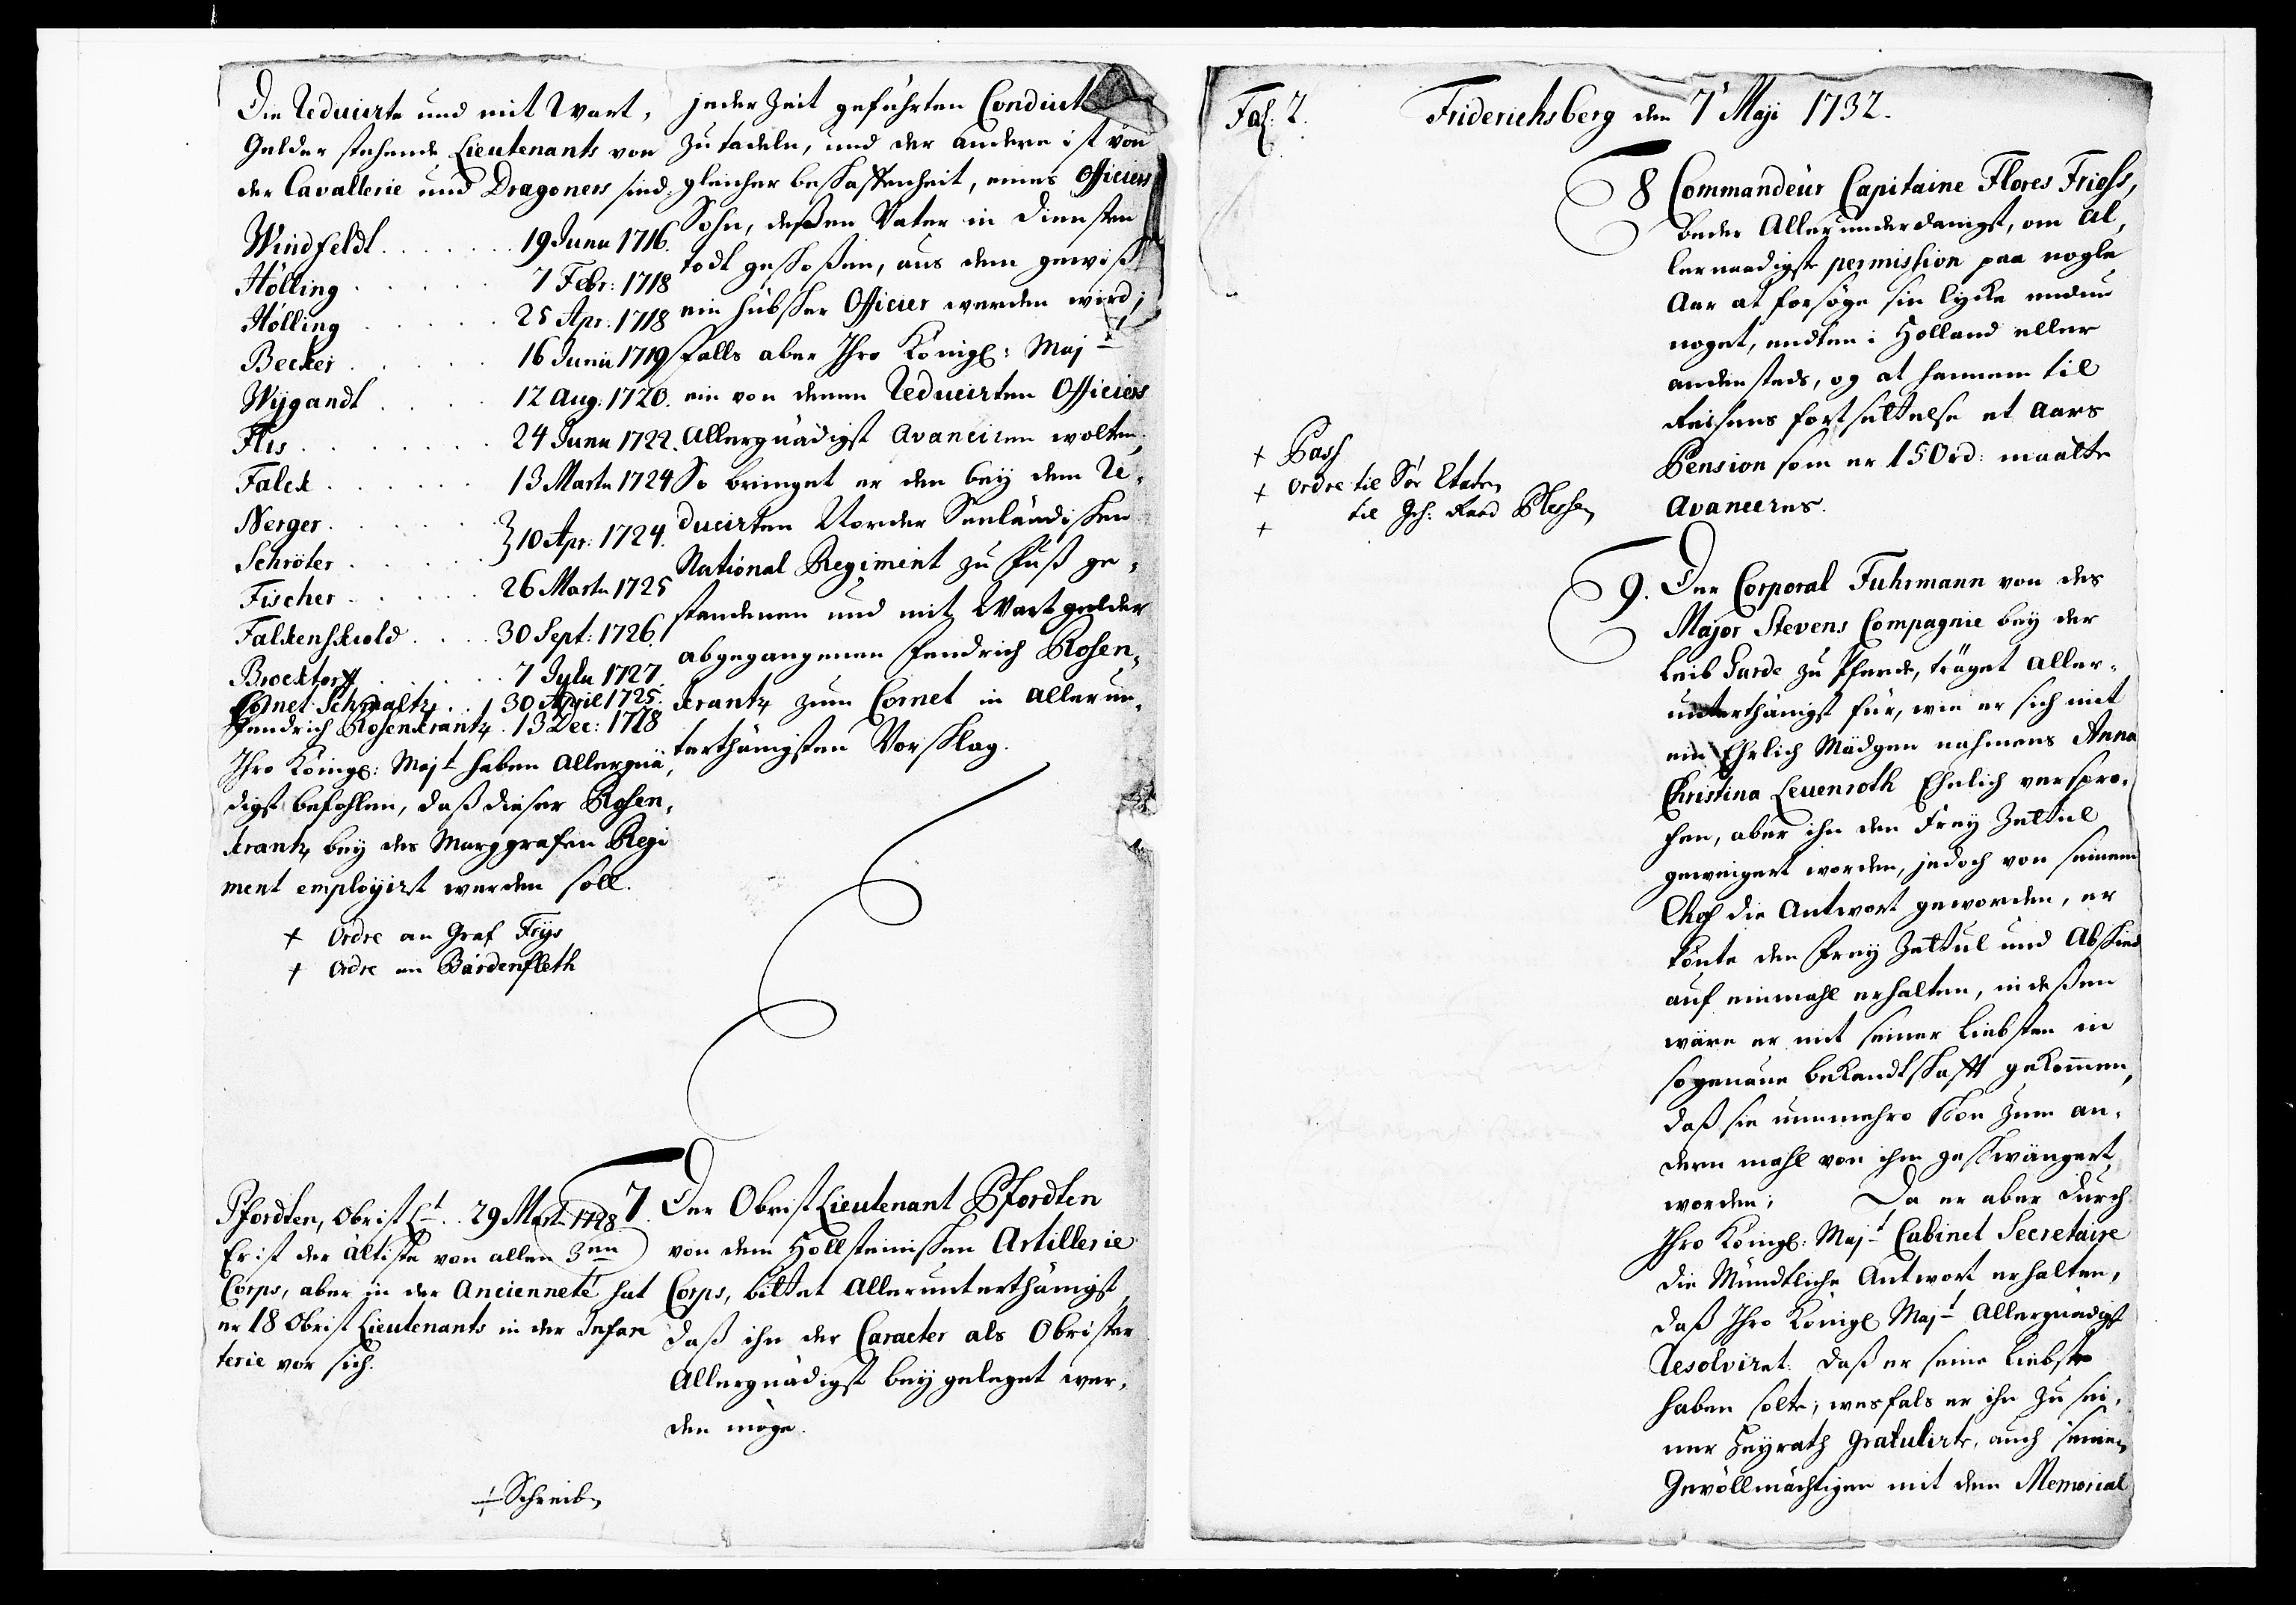 Die Reducirte und mit Wart-
Gelder stehende Lieutenants von
der Cavallerie und Dragoners sind:
Windfeldt . . . . . . . 19 Junii 1716.
Hölling . . . . . . 7 Febr: 1718
Hölling . . . . . 25 Apr: 1718
Becker . . . . . 16 Junii 1719
Wijgandt . . . . 12 Aug: 1720.
Flis . . . . . . . 24 Junii 1722.
Falck . . . . . . 13 Martii 1724
Nerger . . . . . .
Schröter . . . . . } 10 Apr: 1724.
Fischer . . . . . 26 Martii 1725
Falkenskiold . . . . 30 Sept: 1726.
Brocktorff . . . . . . 7 Jylii 1727.
Cornet Schmaltz . . . 30 April 1725.
Fendrich Rosenkrantz . 13 Dec: 1728
Ihro Königl: Majt haben Allergnä-
digst befohlen, daß dieser Rosen-
krantz bey des Marggrafen Regi
ment employirt werden soll.
+ Ordre an Graf Frijs
+ Ordre an Bardenfleth
Pfordten, Obrist Lt . . 29 Mart. 1728
Er ist der ältiste von allen 3en
Corps, aber in der Ancienneté hat
er 18 Obrist Lieutenants in der Infan
terie vor sich.
+ Schreiben
jeder Zeit geführten Conduit
zu tadeln, und der andere ist von
gleicher beschaffenheit, eines Officiers
Sohn, deßen Vater in Diensten
todt geschoßen, aus dem gewiß
ein hübscher Officier werden wird;
falls aber Ihro Königl: Majt
ein von denen Reducirten Officiers
Allergnädigst Avanciren wolten,
So bringet er den bey dem Re-
ducirten Norder Seeländischen
National Regiment zu Fuß ge-
standenen und mit Wartgelder
abgegangenen Fendrich Rosen-
krantz zum Cornet in Allerun-
terthänigsten Vorschlag.
7. Der Obrist Lieutenant Pfordten
von dem Hollsteinischen Artillerie
Corps, bittet Allerunterthänigst,
daß ihn der Caracter als Obrister
Allergnädigst beygeleget wer-
den möge.
Fol: 2. Friderichsberg den 7t Maji 1732.
8 Commandeur Capitaine Flores Friess,
beder Allerunderdanigst, om Al-
lernaadigste permission paa nogle
Aar at forsöge sin lycke endnu
noget, endten i Holland eller
andensteds, og at hannem til
Reisens fortsettelse et Aars
Pension som er 150 rd: maatte
Avanceres.
+ Pass
+ Ordre til Söe Etaten
+ til Geh: Raad Plessen
9. Der Corporal Fuhrmann von des
Major Stevens Compagnie bey der
Leib Garde zu Pferde, träget Aller-
unterthänigst für, wie er sich mit
ein Ehrlich Mädgen nahmens Anna
Christina Leuenroth Ehelich verspro-
chen, aber ihn den Frey Zettul
geweigert worden, jedoch von seinem
Chef die Antwort geworden, er
könte den Frey Zettul und Abschied
auf einmahl erhalten, indeßen
wäre er mit seiner Liebsten in
so genaue bekandtschafft gekommen,
daß sie nunmehro schon zum an-
dern mahl von ihm geschwängert
worden; Da er aber durch
Ihro Königl: Majt Cabinet Secretaire
die Mündtliche Antwort erhalten,
daß Ihro Königl Majt Allergnädigst
Resolviret: daß er seine Liebste
haben solte; wesfals er ihn zu sei-
ner Heyrath gratulirte, auch seinen
Gevollmächtigen mit dem Memorial